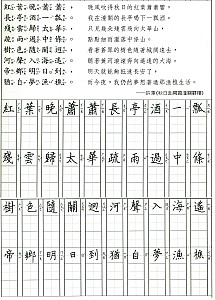 紅葉晚蕭蕭，　晚風吹得秋日的紅葉蕭蕭響，
長亭酒一瓢。　我在潼關的長亭喝下一瓢酒。
殘雲歸太華，　只見幾朵殘雲飛向太華山，
疏雨過中條。　點點細雨灑落中條山。
樹色隨關迥，　看著蒼翠的樹色隨著城關遠去，
河聲入海遙。　聽著黃河滾滾奔向遙遠的大海。
帝鄉明日到，　明天就能夠抵達長安了，
猶自夢漁樵。　而今夜，我仍夢想著過那漁樵生活。
——許渾〈秋日赴闕題潼關驛樓〉
紅葉晚蕭蕭長亭酒一瓢
殘雲歸太華疏雨過中條
樹色隨關迥河聲入海遙
帝鄉明日到猶自夢漁樵